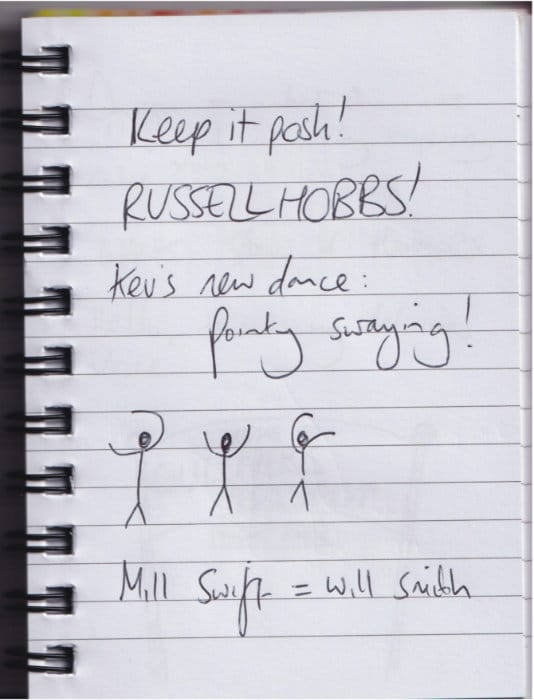 Keep it posh!
RUSSELL HOBBS!
Kev's new dance:
Pointy swaying!
Mill Swift = Will Smith